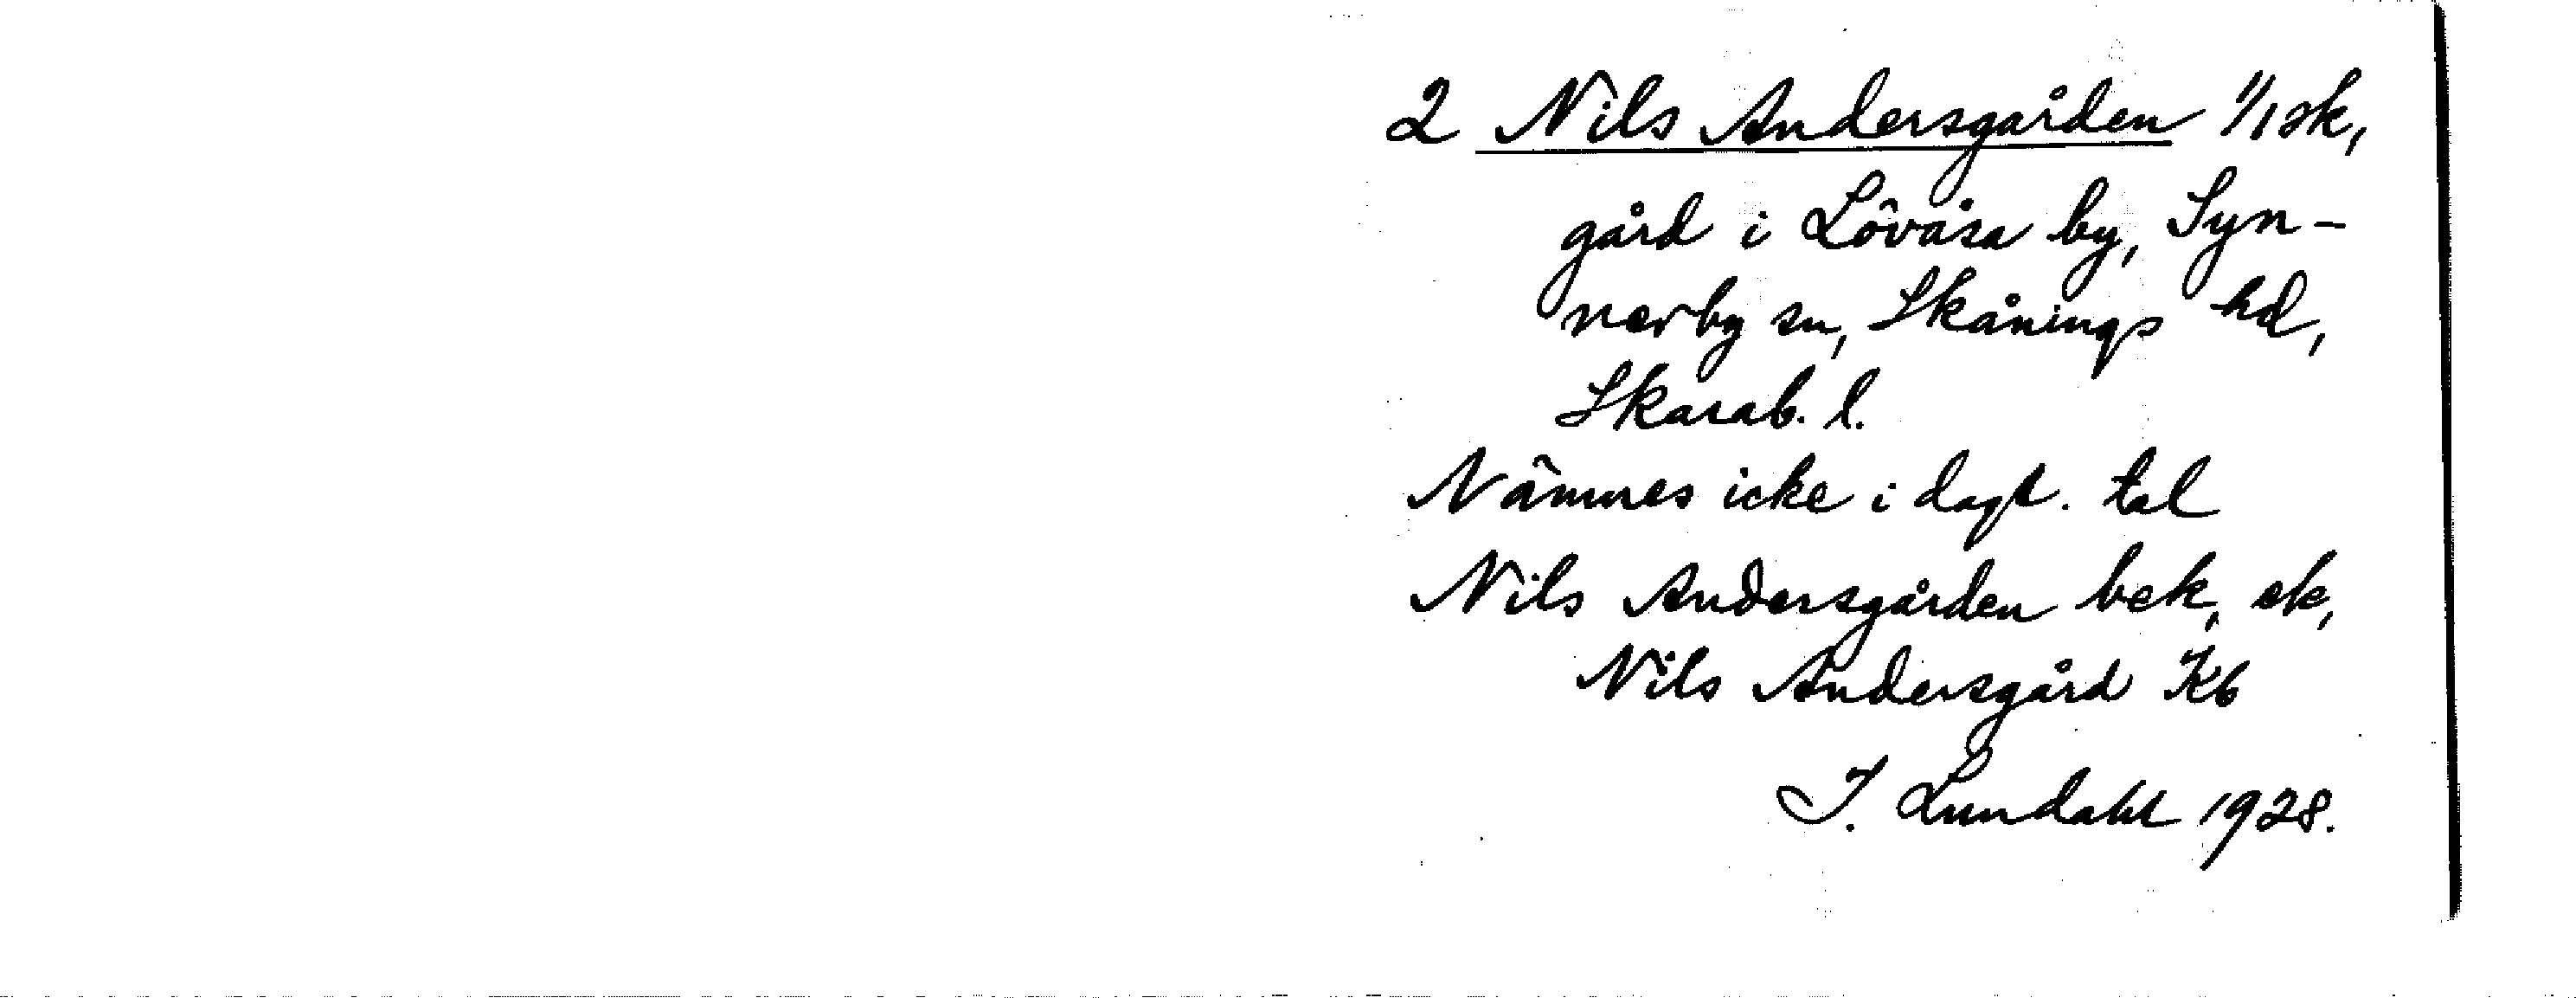 2 Nils Andersgården 1/1 sk,
gård i Lövåsa by, Syn-
nerby sn, Skånings hd,
Skarab. l.
Nämnes icke i dagl. tal
Nils Andersgården bek, ek,
Nils Andersgård Kb
I. Lundahl 1928.